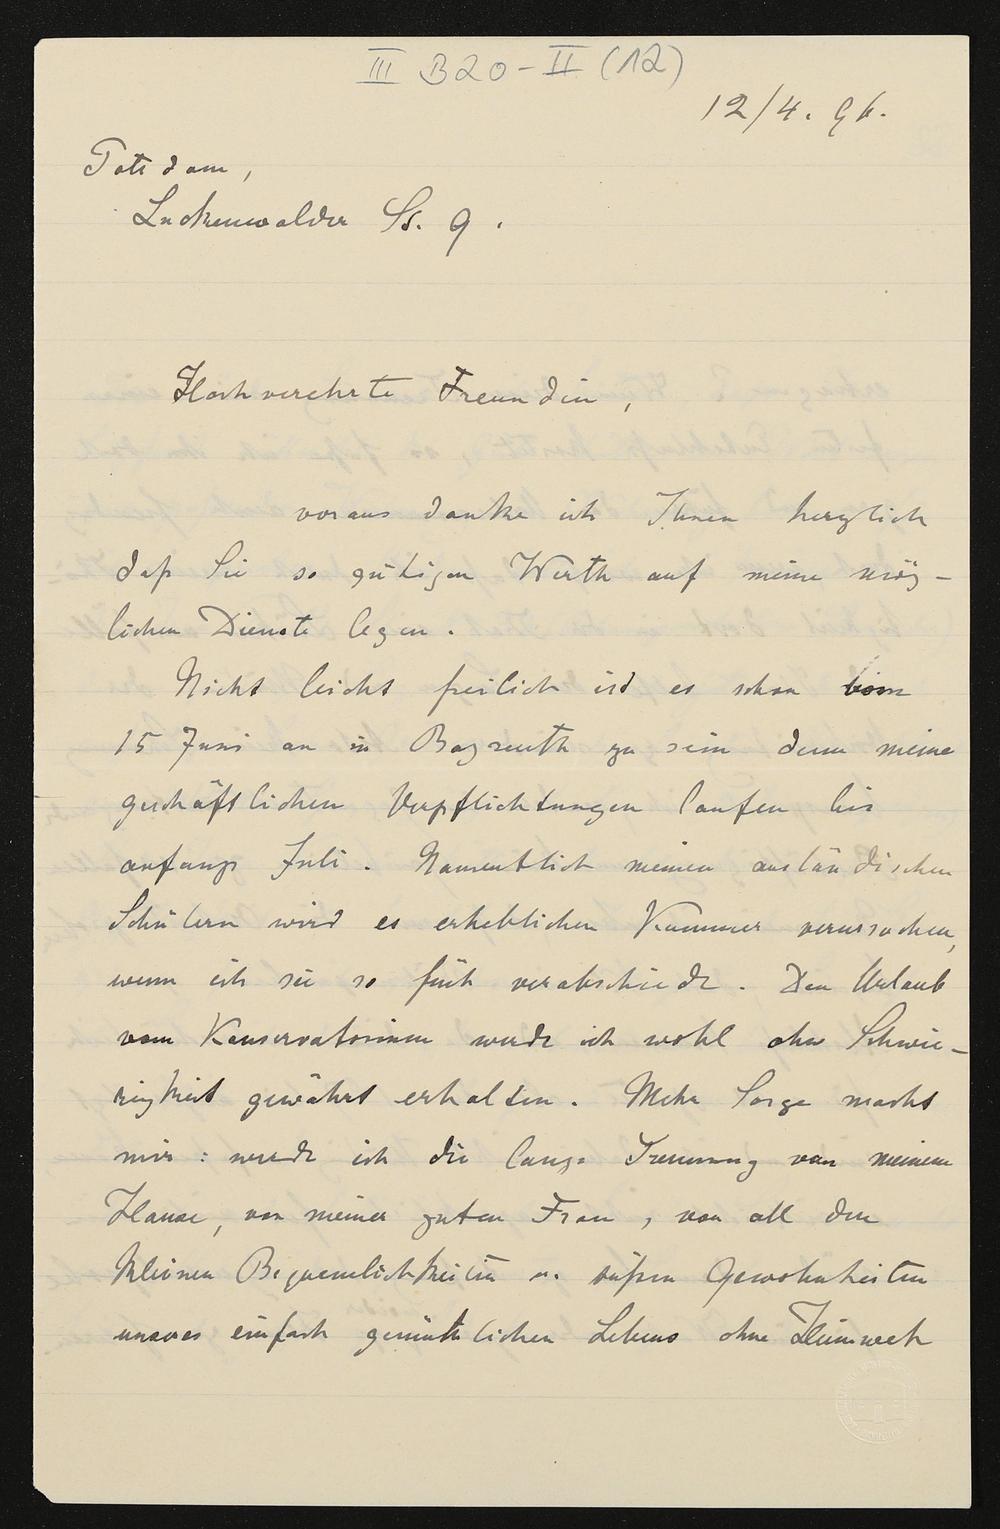 III B20-II (12)
12/4. 96.
Potsdam,
Luckenwalder St. 9.
Hochverehrte Freundin,
voraus danke ich Ihnen herzlich
daß Sie so gütigen Werth auf meine mög-
lichen Dienste legen.
Nicht leicht freilich ist es schon vom
15 Juni an in Bayreuth zu sein denn meine
geschäftlichen Verpflichtungen laufen bis
anfangs Juli. Namentlich meinen ausländischen
Schülern wird es erheblichen Kummer verursachen,
wenn ich sie so früh verabschiede. Den Urlaub
vom Konservatorium werde ich wohl ohne Schwie-
rigkeit gewährt erhalten. Mehr Sorge macht
mir: werde ich die lange Trennung von meinem
Hause, von meiner guten Frau, von all den
kleinen Bequemlichkeiten u. süßen Gewohnheiten
unseres einfach gemüthlichen Lebens ohne Heimweh